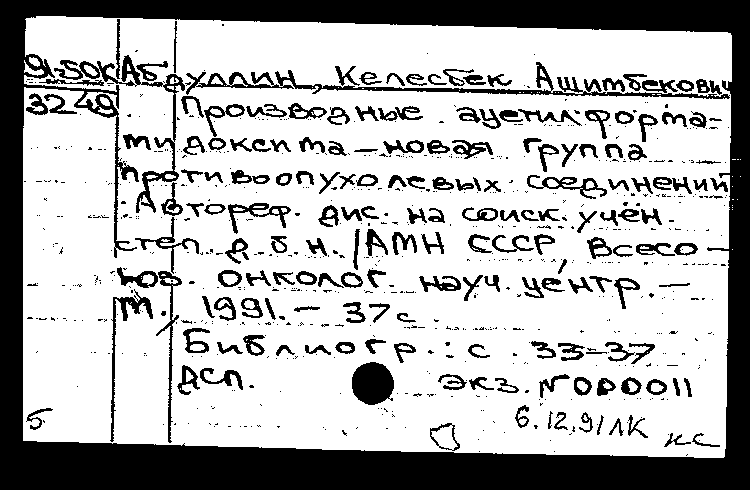 91-50К Абдуллин, Келесбек Ашимбекович
3249. Производные ацетилформа-
мидоксима – новая группа
противоопухолевых соединений
: Автореф. дис. на соиск. учён.
степ. д. б. н. / АМН СССР, Всесо-
юз. онколог. науч. центр. –
М., 1991. – 37 с.
Библиогр.: с. 33-37
ДСП. экз. N000011
б 6.12.91 ЛК нс